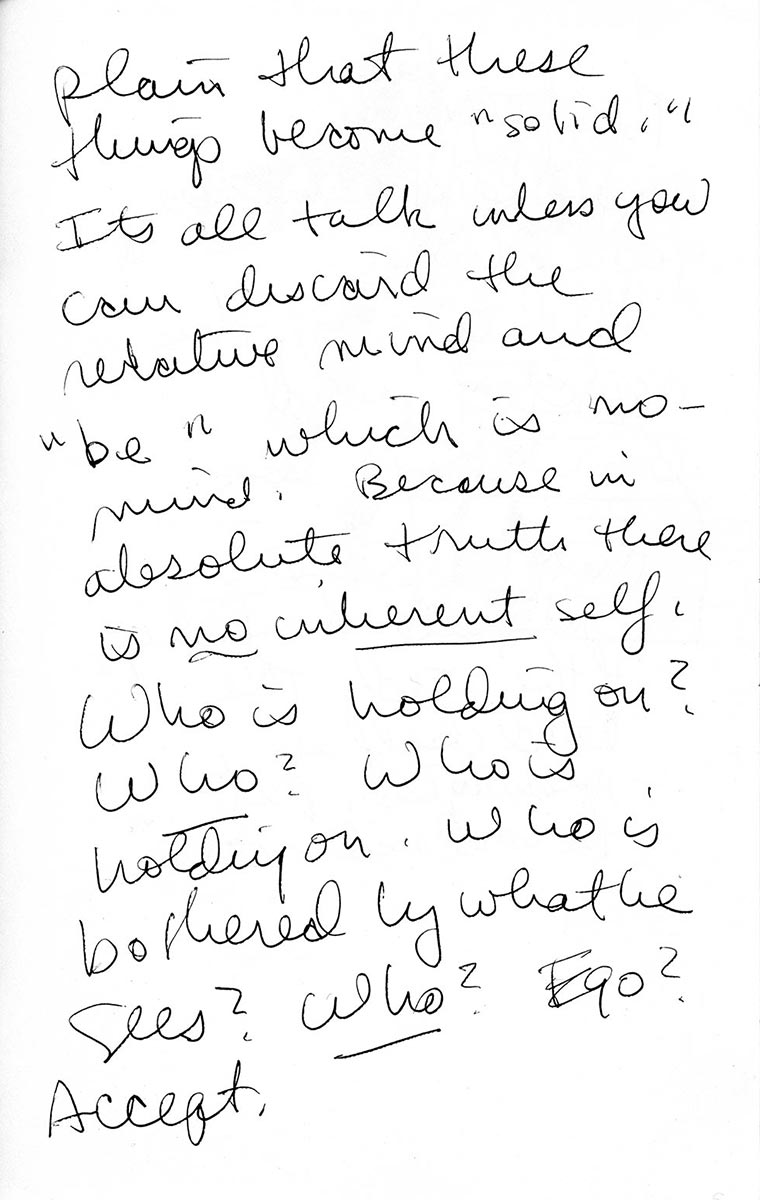 plain that these
things become "solid."
Its all talk unless you
can discard the
relative mind and
"be" which is no-
mind. Because in
absolute truth there
is no inherent self.
Who is holding on?
Who? Who is
holding on. Who is
bothered by what he
sees? Who? Ego?
Accept.